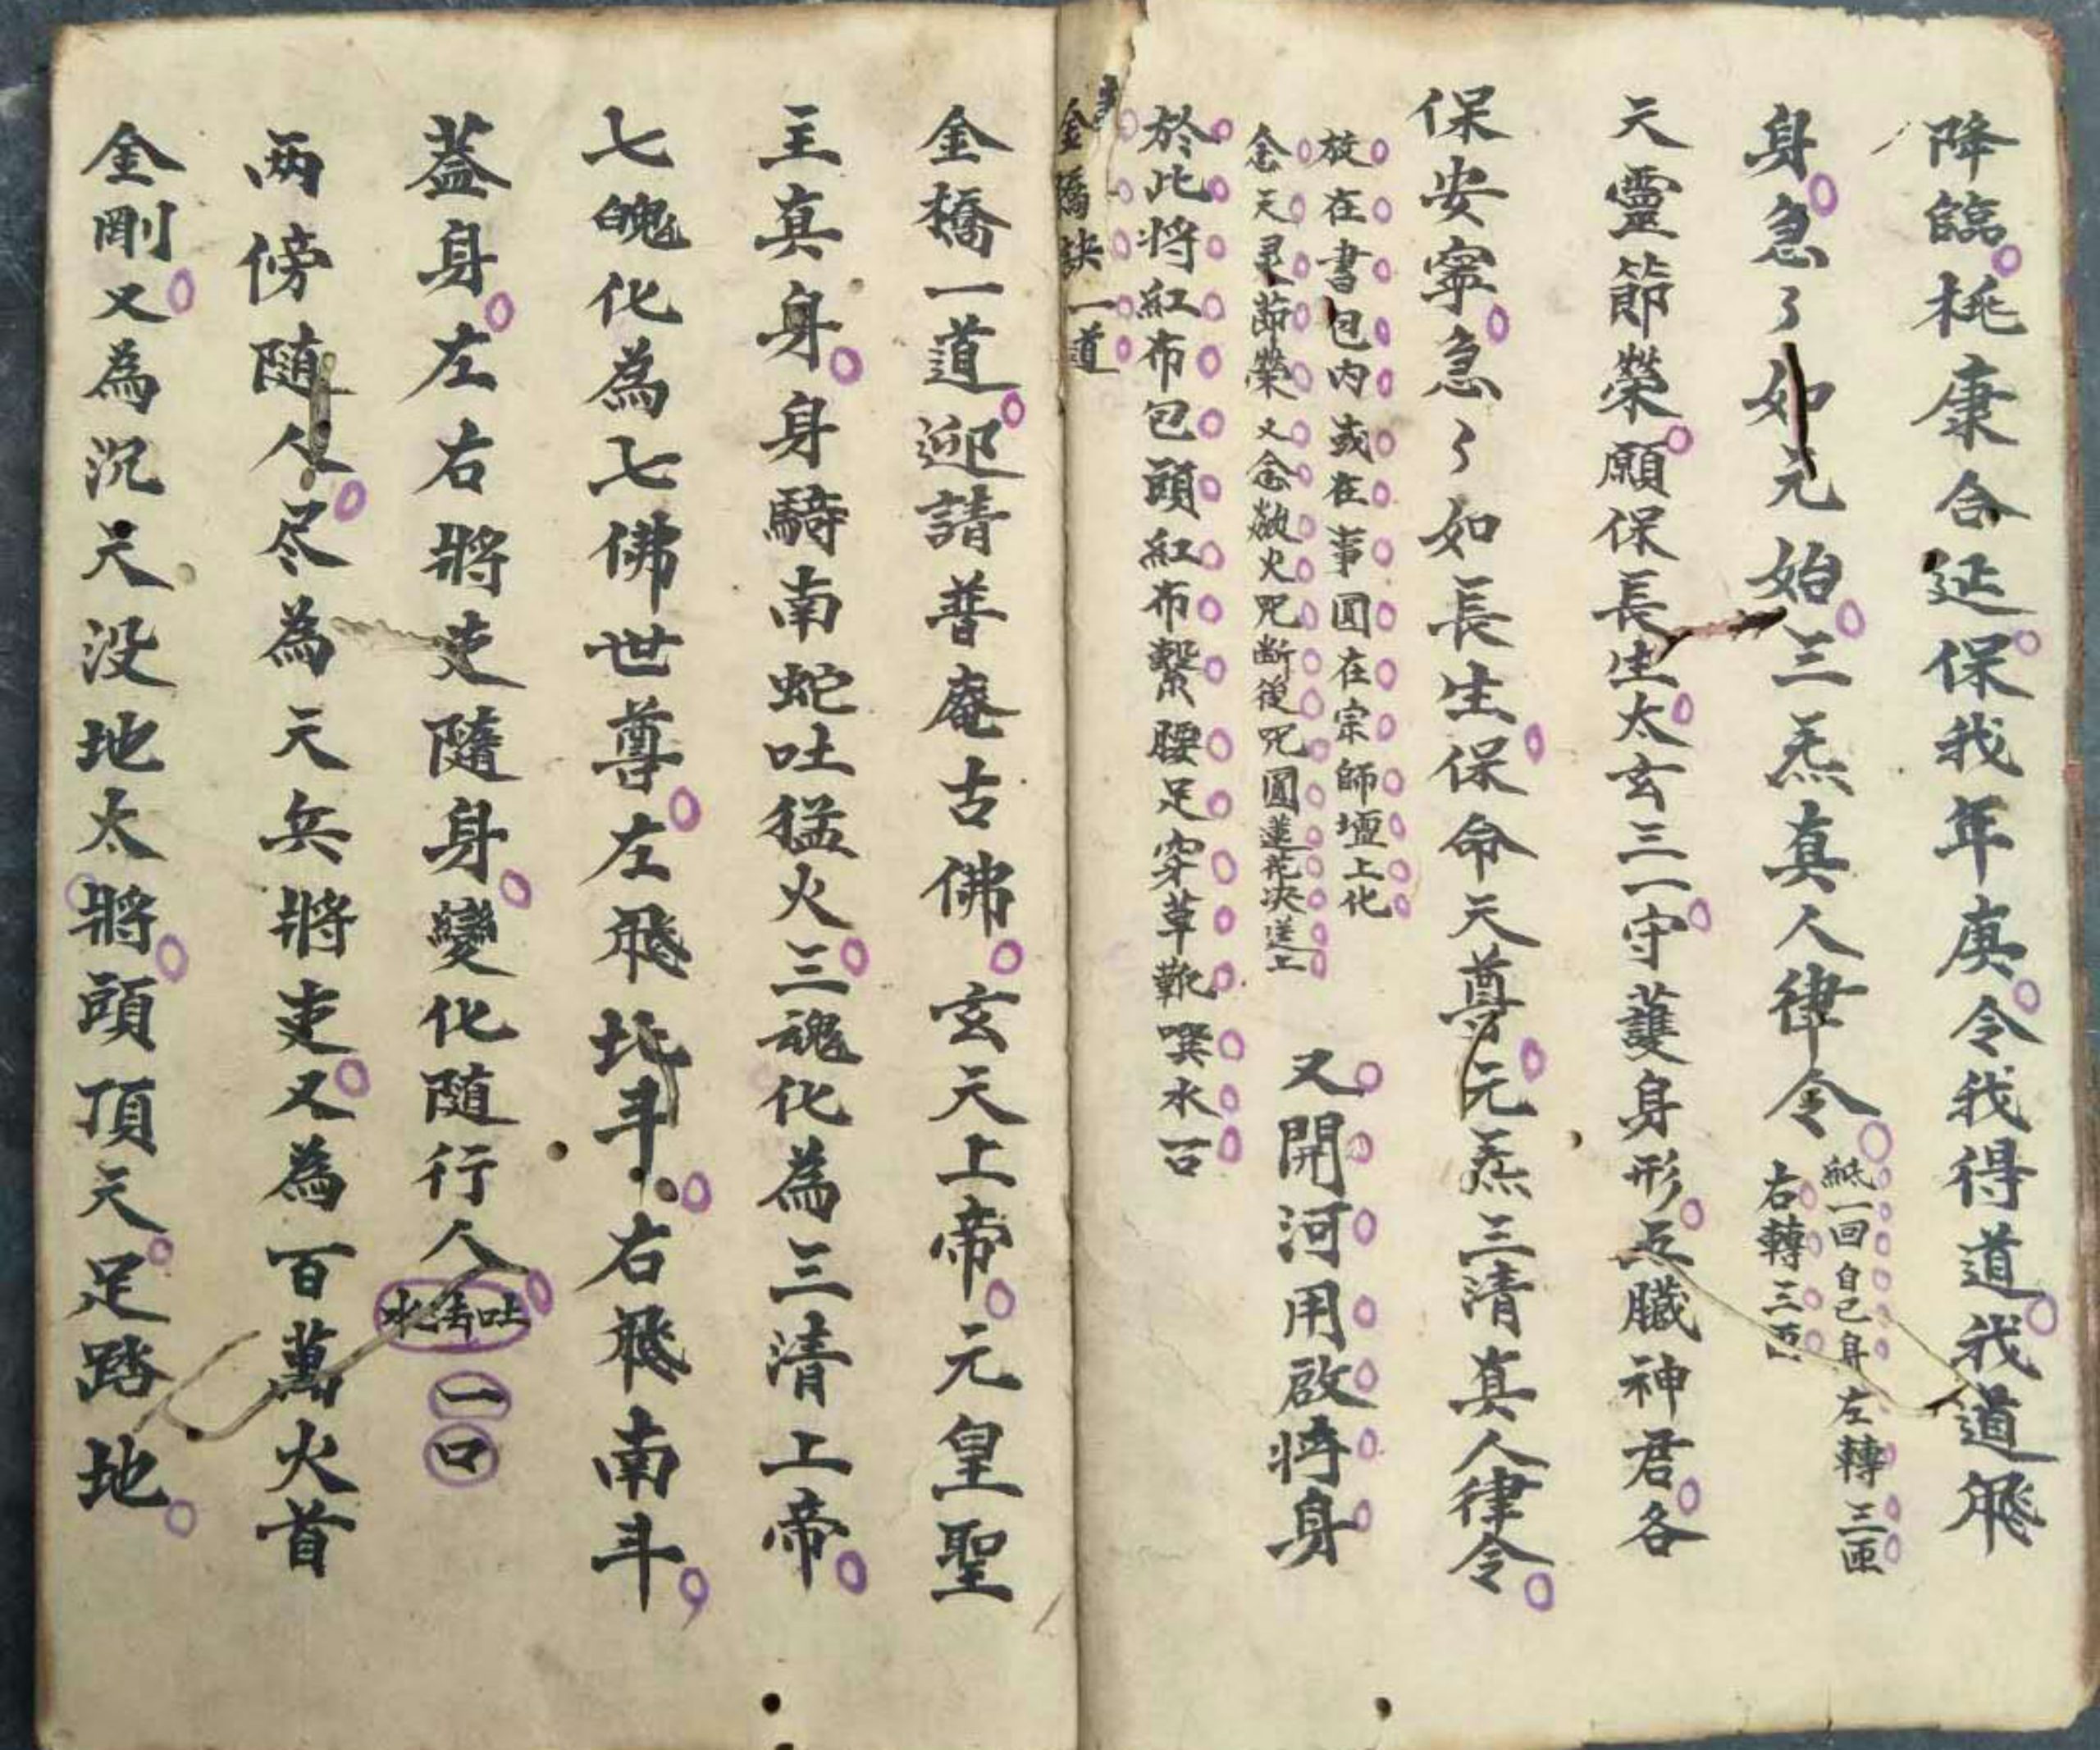 降臨桃康合延保我年庚令我得道我道飛
身急々如元始三炁真人律令
紙一回自己身左轉三匝
右轉三匝
天靈節榮願保長生太玄三一守護身形五臟神君各
保安寧急々如長生保命天尊元炁三清真人律令
放在書包內或在事圓在宗師壇上化
念天灵節榮又念欻火咒斷後咒圓蓮花決送上
又開河用啟將身
於此將紅布包頭紅布繫腰足穿草靴噀水一口
金橋訣一道
金橋一道迎請普庵古佛玄天上帝元皇聖
主真身身騎南蛇吐猛火三魂化為三清上帝
七魄化為七佛世尊左飛北斗右飛南斗
蓋身左右將吏隨身變化随行人
吐法水
一口
兩傍随人尽為天兵將吏又為百萬火首
金剛又為沉天没地太將頭頂天足踏地